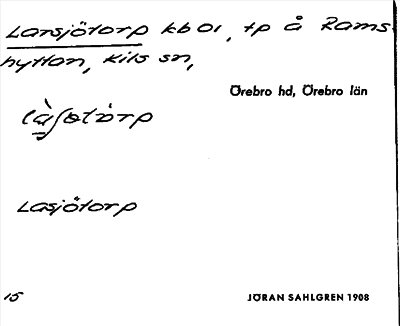 Larsjötorp kb 01, tp å Rams-
hyttan, Kils sn,
Örebro hd, Örebro län
Lasjötorp
15
JÖRAN SAHLGREN 1908